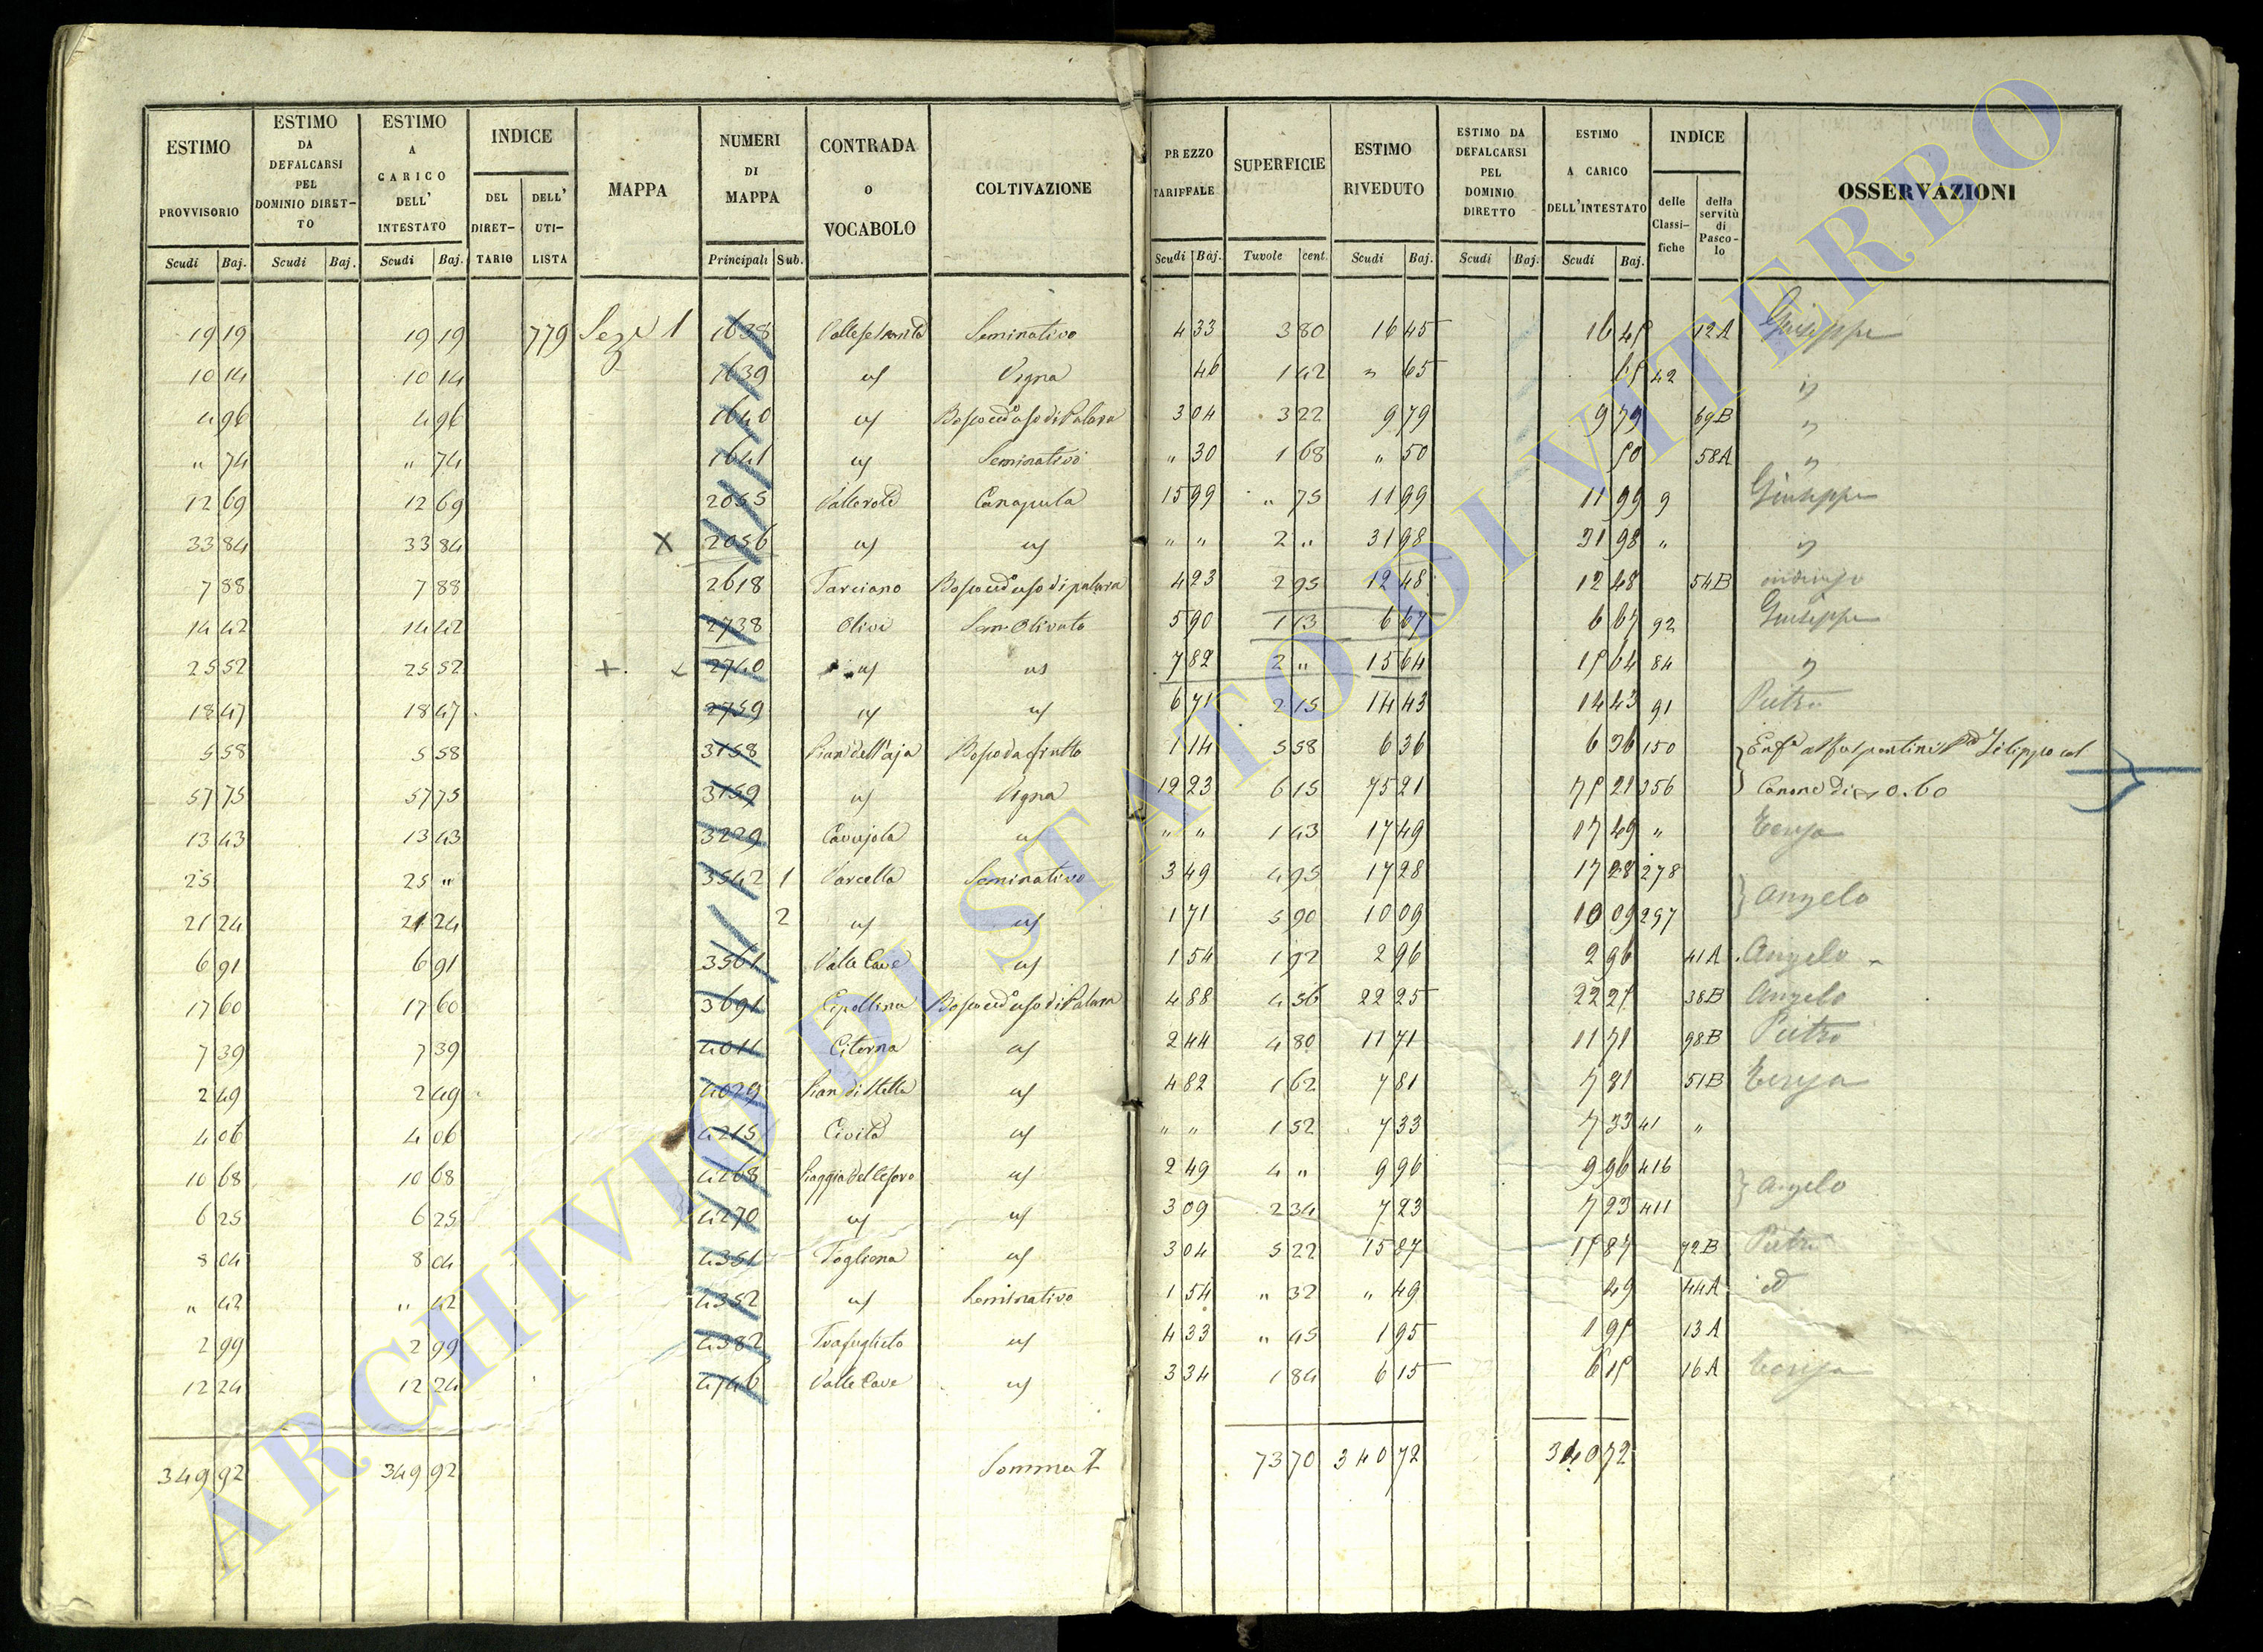 ESTIMO PROVVISORIO Scudi Baj.
ESTIMO DA DEFALCARSI PEL DOMINIO DIRETTO Scudi Baj.
ESTIMO A CARICO DELL' INTESTATO Scudi Baj.
INDICE DEL DIRETTARIO DELL' UTILISTA
MAPPA
NUMERI DI MAPPA Principali Sub.
CONTRADA O VOCABOLO
COLTIVAZIONE
PREZZO TARIFFALE Scudi Baj.
SUPERFICIE Tavole cent.
ESTIMO RIVEDUTO Scudi Baj.
ESTIMO DA DEFALCARSI PEL DOMINIO DIRETTO Scudi Baj.
ESTIMO A CARICO DELL'INTESTATO Scudi Baj.
INDICE delle Classifiche della servitù di Pascolo
OSSERVAZIONI
19 19 19 19 779 Sezе 1 1638 Seminativo 4 33 3 80 16 45 16 45 12A Giuseppe
10 14 10 14 1639 Vigna 46 1 42 " 65 65 42 "
4 96 4 96 1640 3 04 3 22 9 79 9 79 69B "
" 74 " 74 1641 Seminativo " 30 1 68 " 50 50 58A "
12 69 12 69 2055 Canapula 15 99 " 75 11 99 11 99 9 Giuseppe
33 84 33 84 X 2056 " " 2 " 31 98 31 98 " "
7 88 7 88 2618 Tarciano 4 23 2 95 12 48 12 48 54B
14 42 14 42 2738 Olivi Sem Olivato 5 90 1 13 6 67 6 67 92 Giuseppe
25 52 25 52 + x 2740 7 82 2 " 15 64 15 64 84 "
18 47 18 47 2759 6 71 2 15 14 43 14 43 91 Pietro
5 58 5 58 3158 Pian dell'aja Bosco da frutto 1 14 5 58 6 36 6 36 150
57 75 57 75 3159 Vigna 12 23 6 15 75 21 75 21 356 Canone di 0.60
13 43 13 43 3229 Cavajola " " 1 43 17 49 17 49 "
25 25 " 3542 1 Varcella Seminativo 3 49 4 95 17 28 17 28 278 Angelo
21 24 21 24 2 1 71 5 90 10 09 10 09 297
6 91 6 91 3561 Valle Cave 1 54 1 92 2 96 2 96 41A Angelo
17 60 17 60 3691 4 88 4 56 22 25 22 25 38B Angelo
7 39 7 39 4011 Citerna 2 44 4 80 11 71 11 71 98B Pietro
2 49 2 49 4029 Pian di Stella 4 82 1 62 7 81 7 81 51B
4 06 4 06 4215 Civita " " 1 52 7 33 7 33 41 "
10 68 10 68 4268 2 49 4 " 9 96 9 96 416 Angelo
6 25 6 25 4270 3 09 2 34 7 23 7 23 411
8 04 8 04 4351 Togliena 3 04 5 22 15 87 15 87 72B Pietro
" 42 " 42 4352 Seminativo 1 54 " 32 " 49 49 44A id
2 99 2 99 4382 4 33 " 45 1 95 1 95 13A
12 24 12 24 4746 Valle Cave 3 34 1 84 6 15 6 15 16A
349 92 349 92 Somma 73 70 340 72 340 72
ARCHIVIO DI STATO DI VITERBO